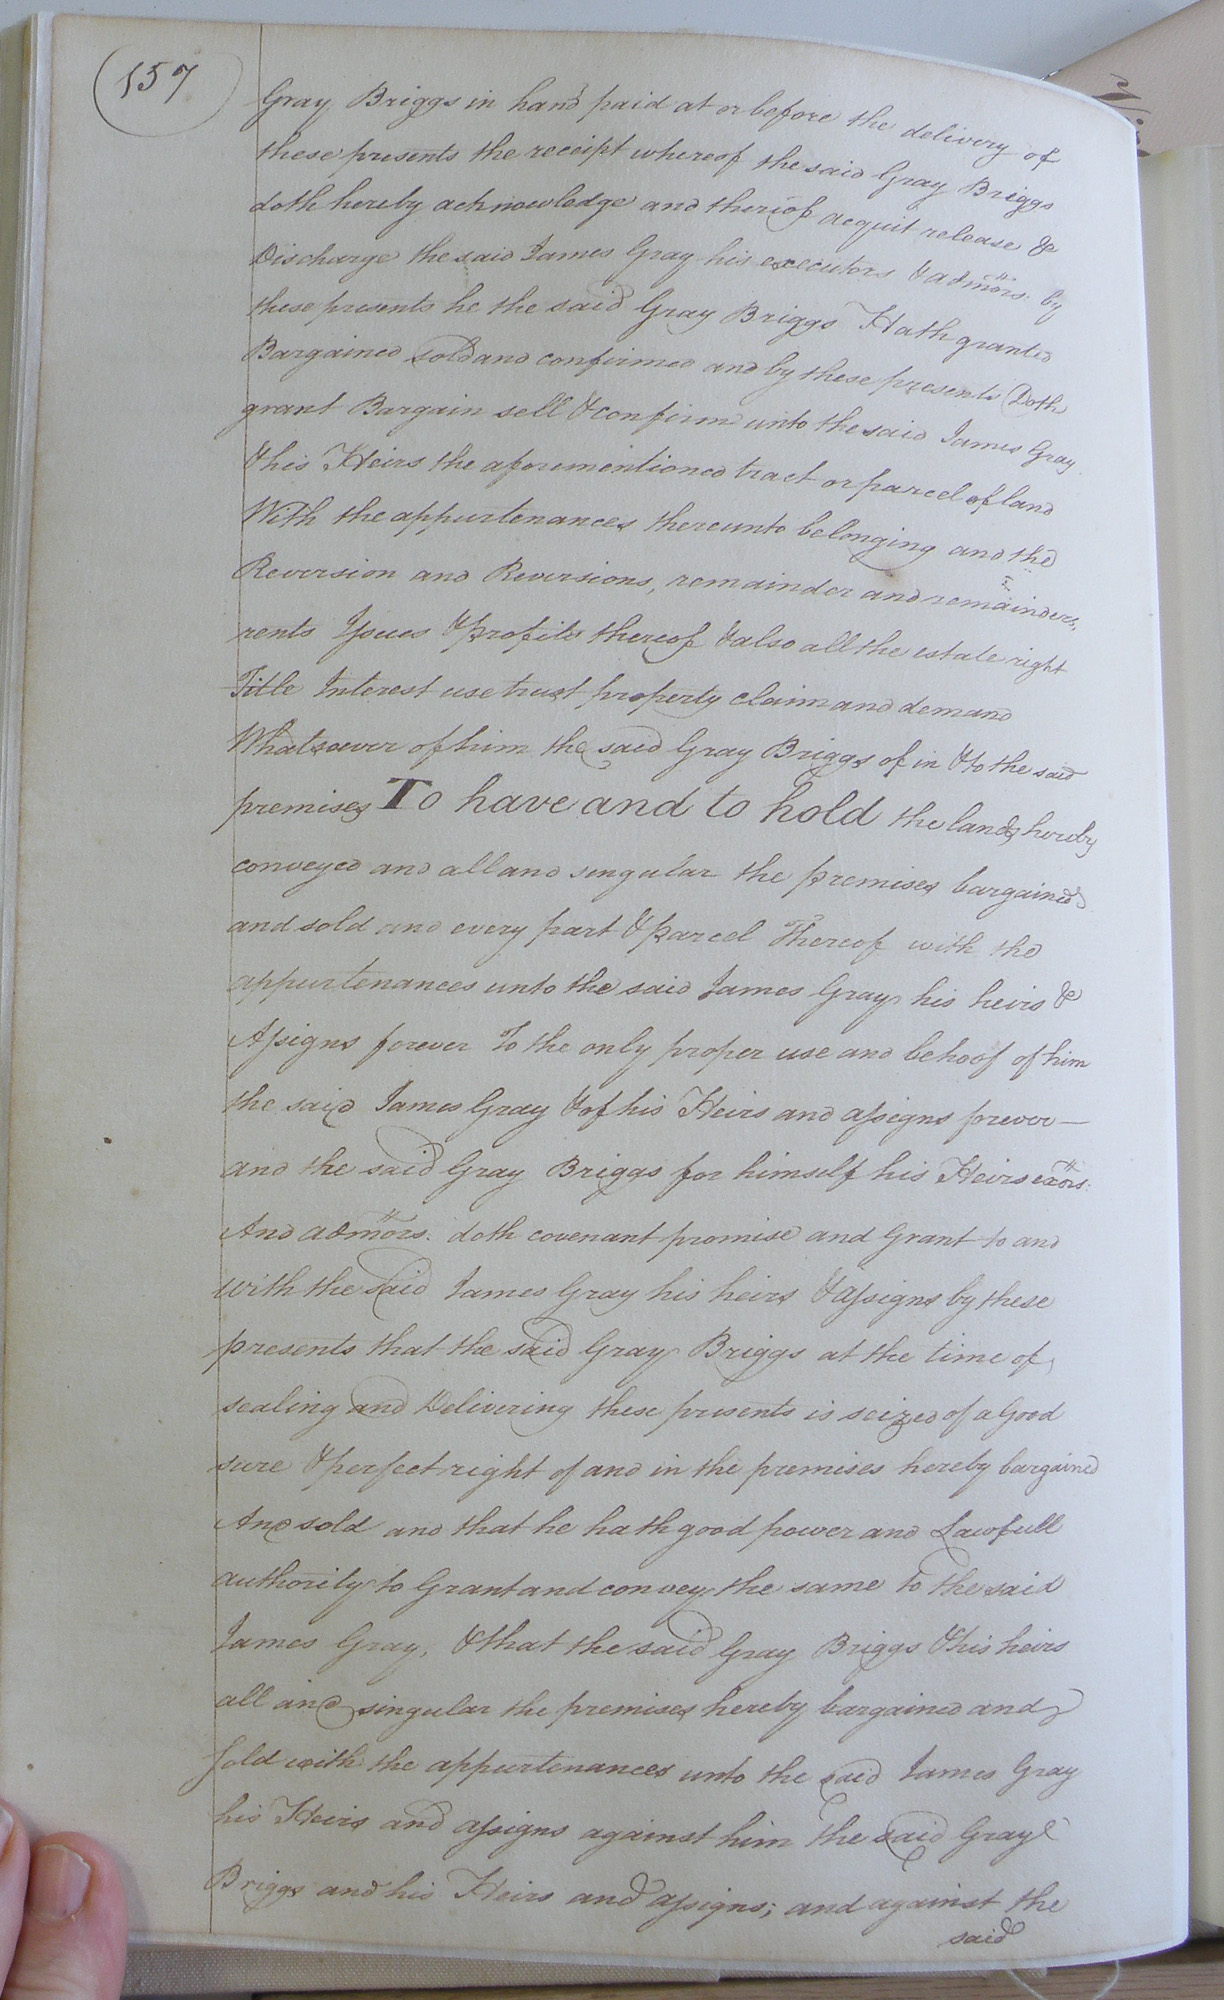 157
Gray Briggs in hand paid at or before the delivery of
these presents the receipt whereof the said Gray Briggs
doth hereby acknowledge and thereof acquit release &
Discharge the said James Gray his executors & admors. by
these presents he the said Gray Briggs Hath granted
Bargained sold and confirmed and by these presents Doth
grant Bargain sell & confirm unto the said James Gray
& his Heirs the aforementioned tract or parcel of land
With the appurtenances thereunto belonging and the
Reversion and Reversions, remainder and remainders,
rents Issues & profits thereof & also all the estate right
Title Interest use trust property claim and demand
Whatsoever of him the said Gray Briggs of in & to the said
premises To have and to hold the lands hereby
conveyed and all and singular the premises bargained
and sold and every part & parcel Thereof with the
appurtenances unto the said James Gray his heirs &
Assigns forever To the only proper use and behoof of him
the said James Gray & of his Heirs and assigns forever —
and the said Gray Briggs for himself his Heirs exors:
And admors: doth covenant promise and Grant to and
with the said James Gray his heirs & assigns by these
presents that the said Gray Briggs at the time of
sealing and Delivering these presents is seized of a Good
sure & perfect right of and in the premises hereby bargained
And sold and that he hath good power and Lawfull
authority to Grant and convey the same to the said
James Gray, & that the said Gray Briggs & his heirs
all and singular the premises hereby bargained and
sold with the appurtenances unto the said James Gray
his Heirs and assigns against him the said Gray
Briggs and his Heirs and assigns; and against the
said